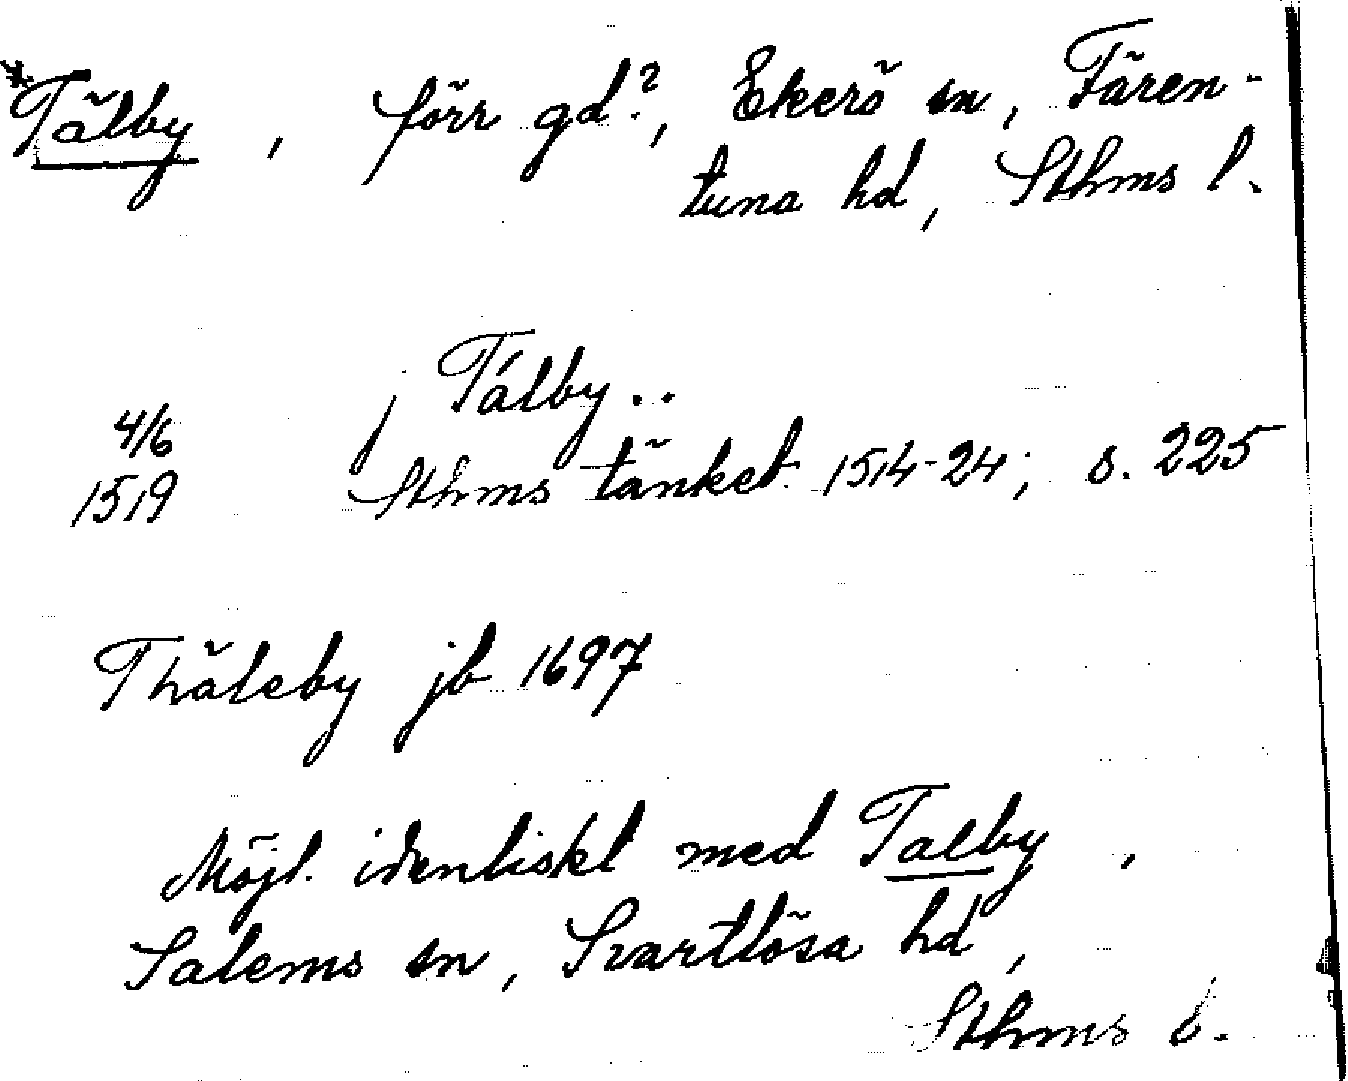 *Tälby, förr gd?, Ekerö sn, Fären-
tuna hd, Sthms l.
4/6 j Tálby..
1519 Sthms tänkeb 1514-24; s. 225
Thäleby jb 1697
Möjl. identiskt med Talby,
Salems sn, Svartlösa hd,
Sthms l.